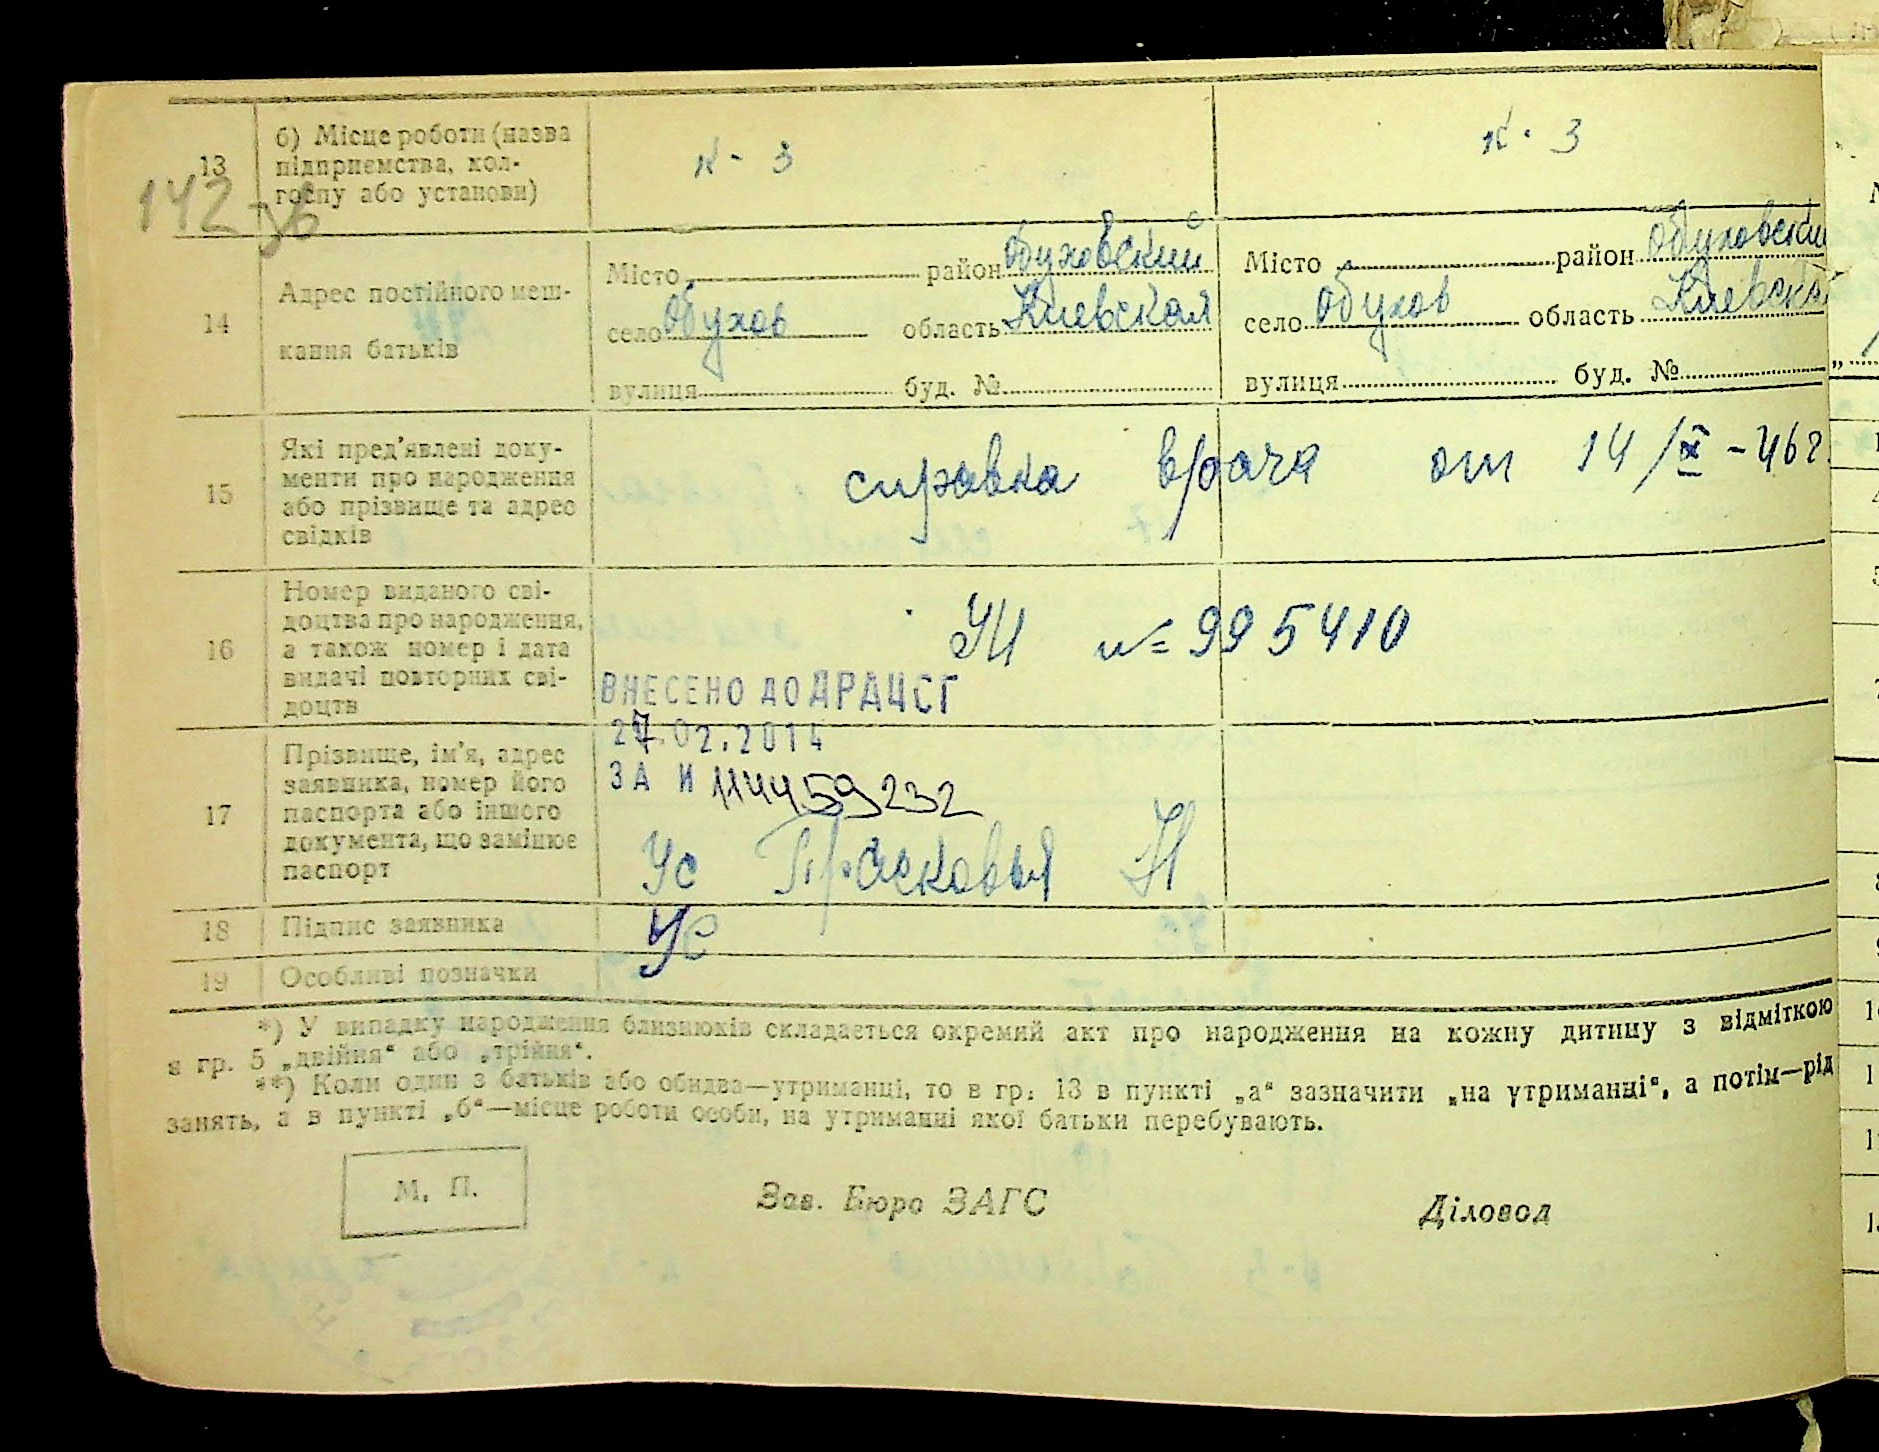 13
б) Місце роботи (назва
підприємства, кол-
госпу або установи)
к - з
к - з
142
14
Адрес постійного меш-
кання батьків
Місто район Обуховский
село Обухов область Киевская
вулиця буд. №
Місто район Обуховский
село Обухов область Киевская
вулиця буд. №
15
Які пред'явлені доку-
менти про народження
або прізвище та адрес
свідків
справка врача от 14/IX - 46 г.
16
Номер виданого сві-
доцтва про народження,
а також номер і дата
видачі повторних сві-
доцтв
№ 995410
ВНЕСЕНО ДО ДРАЦСГ
27.02.2014
ЗА №
17
Прізвище, ім'я, адрес
заявника, номер його
паспорта або іншого
документа, що замінює
паспорт
Ус Прасковья Н
18
Підпис заявника
Ус
19
Особливі позначки
*) У випадку народження близнюків складається окремий акт про народження на кожну дитину з відміткою
в гр. 5 „двійня“ або „трійня“.
**) Коли один з батьків або обидва—утриманці, то в гр. 13 в пункті „а“ зазначити „на утриманні“, а потім—рід
занять, а в пункті „б“—місце роботи особи, на утриманні якої батьки перебувають.
М. П.
Зав. Бюро ЗАГС
Діловод